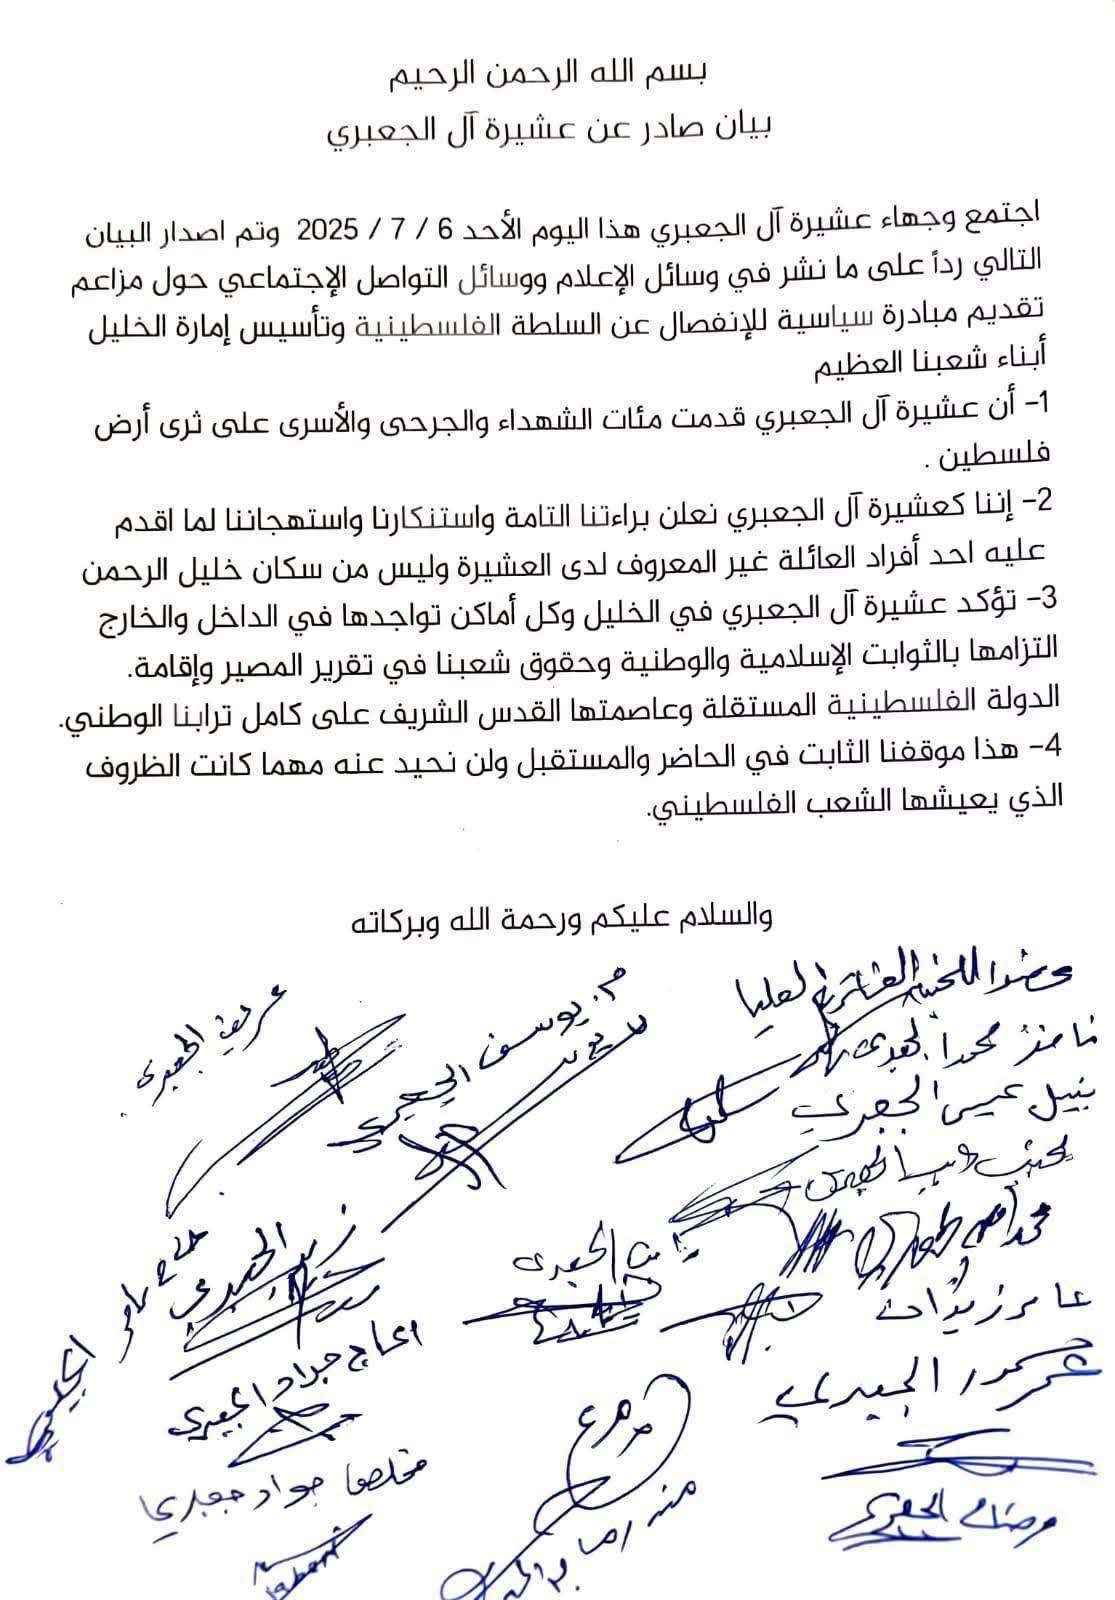 بسم الله الرحمن الرحيم
بيان صادر عن عشيرة آل الجعبري
اجتمع وجهاء عشيرة آل الجعبري هذا اليوم الأحد 6 / 7 / 2025 وتم اصدار البيان
التالي رداً على ما نشر في وسائل الإعلام ووسائل التواصل الإجتماعي حول مزاعم
تقديم مبادرة سياسية للإنفصال عن السلطة الفلسطينية وتأسيس إمارة الخليل
أبناء شعبنا العظيم
1- أن عشيرة آل الجعبري قدمت مئات الشهداء والجرحى والأسرى على ثرى أرض
فلسطين .
2- إننا كعشيرة آل الجعبري نعلن براءتنا التامة واستنكارنا واستهجاننا لما اقدم
عليه احد أفراد العائلة غير المعروف لدى العشيرة وليس من سكان خليل الرحمن
3- تؤكد عشيرة آل الجعبري في الخليل وكل أماكن تواجدها في الداخل والخارج
التزامها بالثوابت الإسلامية والوطنية وحقوق شعبنا في تقرير المصير وإقامة.
الدولة الفلسطينية المستقلة وعاصمتها القدس الشريف على كامل ترابنا الوطني.
4- هذا موقفنا الثابت في الحاضر والمستقبل ولن نحيد عنه مهما كانت الظروف
الذي يعيشها الشعب الفلسطيني.
والسلام عليكم ورحمة الله وبركاته
م. يوسف الجعبري
نبيل عيسى الجعبري
الجعبري
زيد الجعبري
عامر زيدات
الحاج جواد الجعبري
الجعبري
جواد جعبري